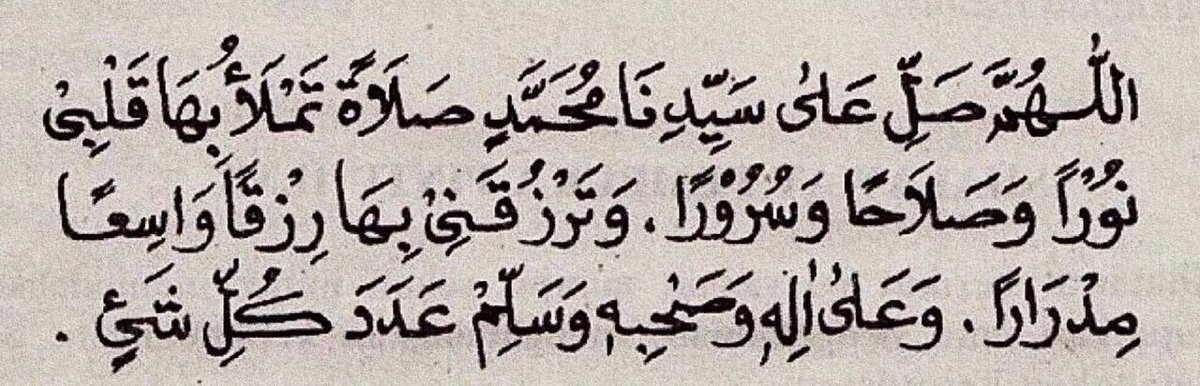 اللّٰهُمَّ صَلِّ عَلٰى سَيِّدِنَا مُحَمَّدٍ صَلَاةً تَمْلَأُ بِهَا قَلْبِيْ
نُوْرًا وَصَلَاحًا وَسُرُوْرًا. وَتَرْزُقَنِيْ بِهَا رِزْقًا وَاسِعًا
مِدْرَارًا. وَعَلٰى اٰلِهٖ وَصَحْبِهٖ وَسَلِّمْ عَدَدَ كُلِّ شَيْءٍ.